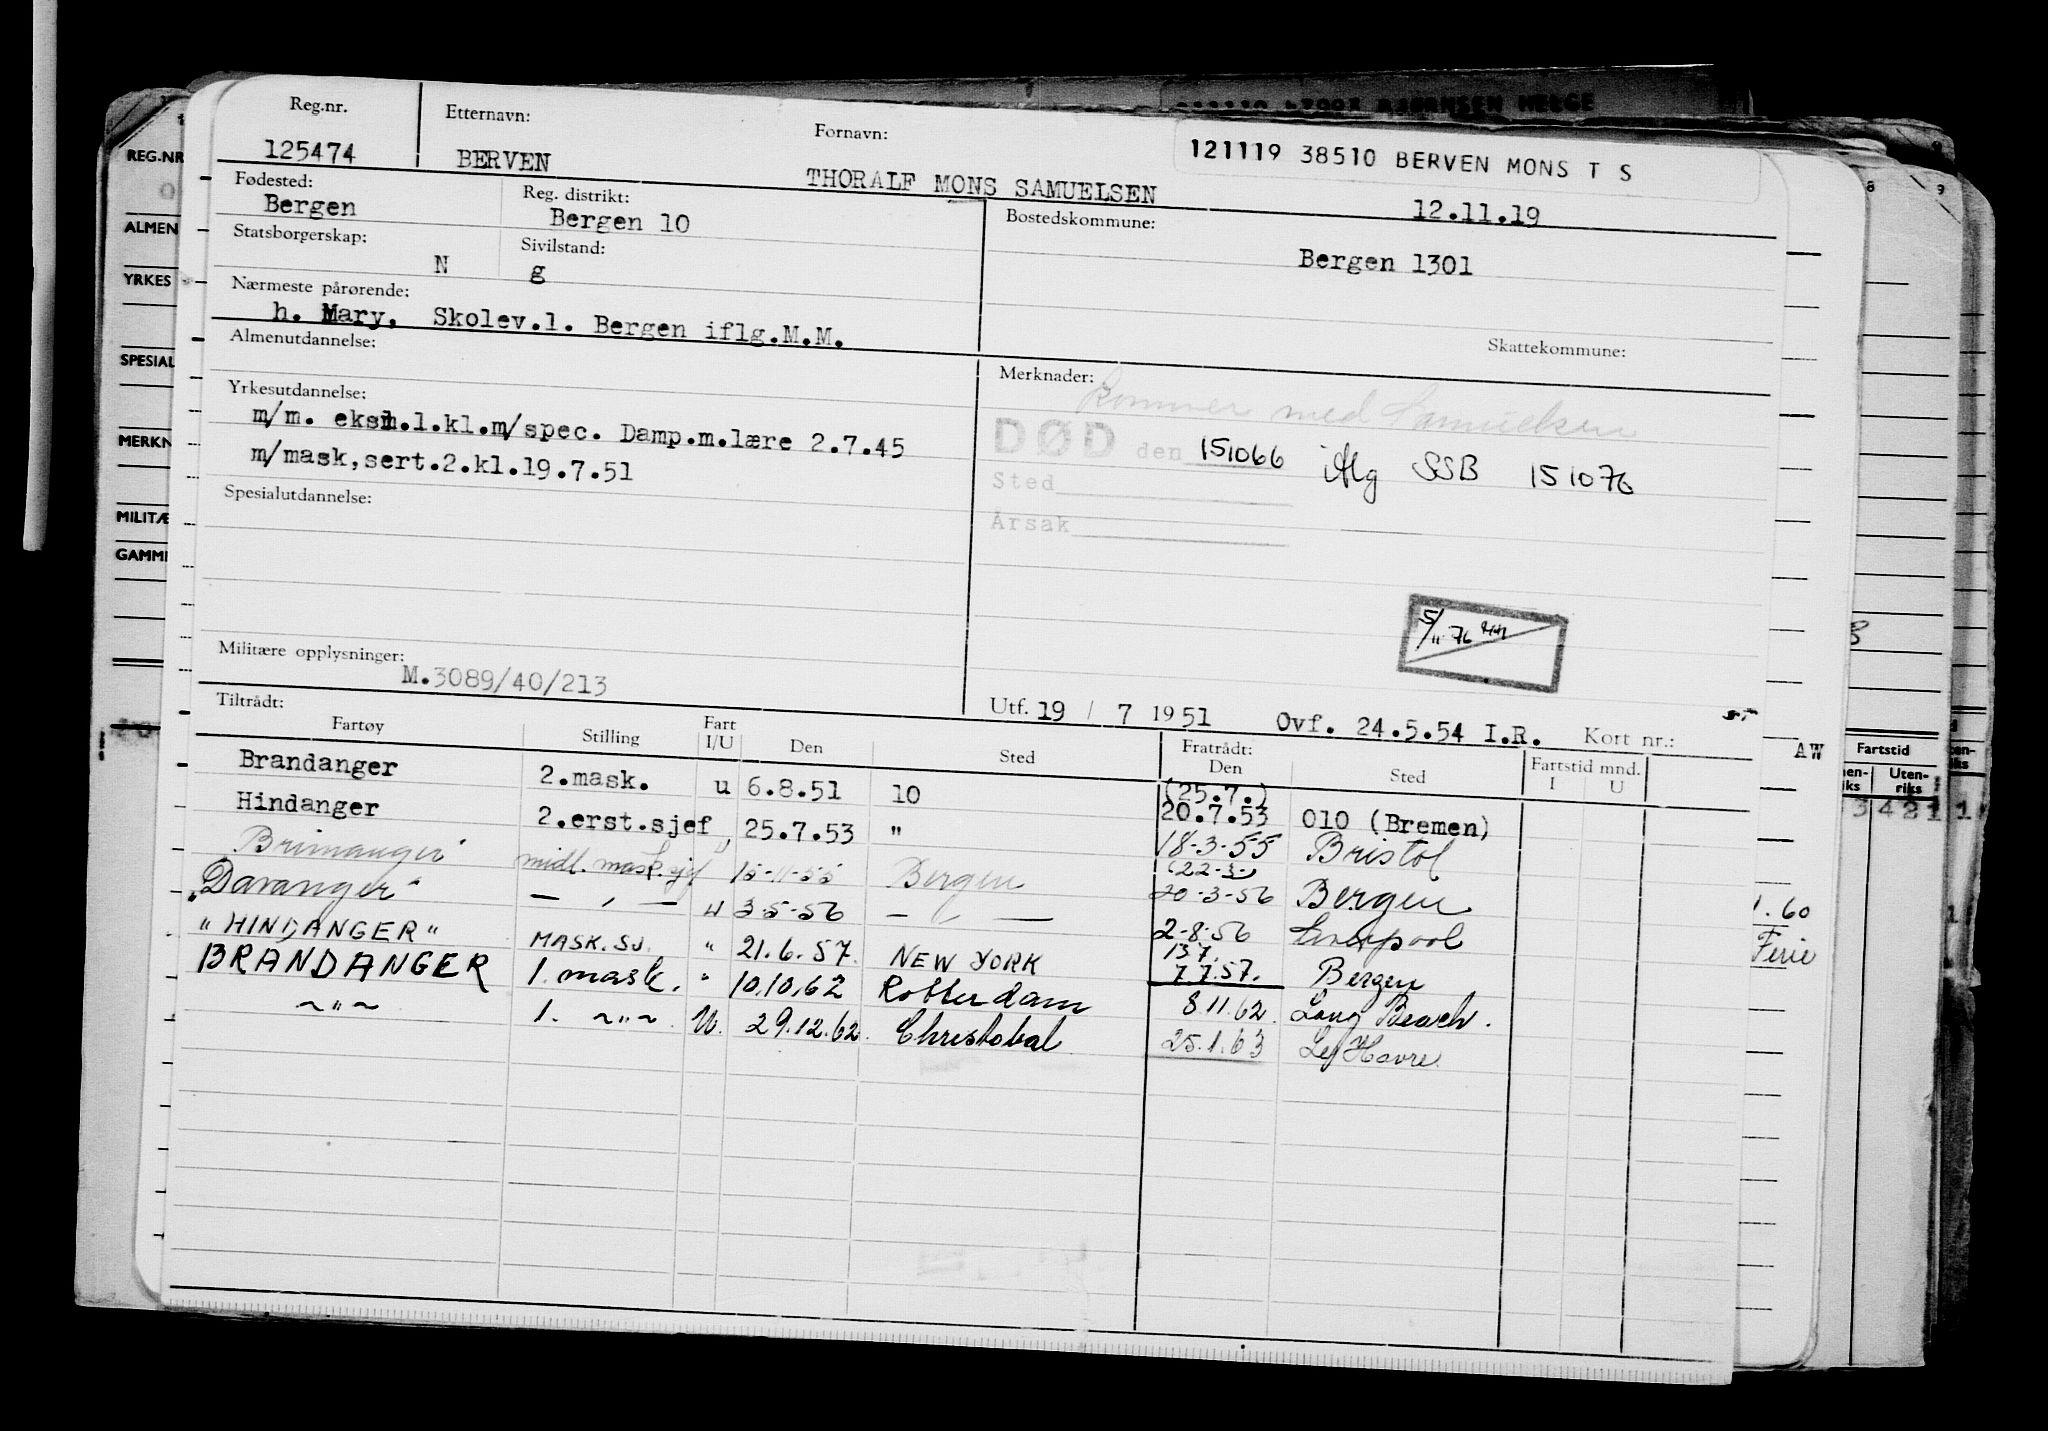 Reg.nr. Etternavn: Fornavn:
125474 BERVEN THORALF MONS SAMUELSEN
121119 38510 BERVEN MONS T S
12.11.19
Fødested: Reg. distrikt: Bostedskommune:
Bergen Bergen 10
Bergen 1301
Statsborgerskap: Sivilstand:
N g
Nærmeste pårørende:
h. Mary, Skolev.1. Bergen iflg.M.M.
Skattekommune:
Almenutdannelse:
Merknader:
Kommer med Samuelsen
Yrkesutdannelse:
m/m. eksm.1.kl.m/spec. Damp.m.lære 2.7.45
m/mask,sert.2.kl.19.7.51
DØD den 151066 iflg SSB 151076
Sted
Årsak
Spesialutdannelse:
5/11 76
Militære opplysninger:
M.3089/40/213
Utf. 19 / 7 1951 Ovf. 24.5.54 I.R. Kort nr.:
Tiltrådt: Fratrådt: Fartstid mnd.
Fartøy Stilling Fart I/U Den Sted Den Sted I U
Brandanger 2.mask. u 6.8.51 10 (25.7.) 20.7.53 010 (Bremen)
Hindanger 2.erst.sjef " 25.7.53 " 18-3-55 Bristol
Brimanger midl. mask.sjef 15-11-55 Bergen (22-3-) 20-3-56 Bergen
"Davanger" — " — u 3-5-56 — " — 2-8-56 Liverpool
"HINDANGER" MASK.SJ. " 21.6.57. NEW YORK 13.7. 7.7.57. Bergen
BRANDANGER 1. mask. " 10.10.62 Rotterdam 8.11.62. Long Beach.
~"~ 1. ~"~ U. 29.12.62. Christobal 25.1.63 Le Havre.
REG.NR
ALMEN
YRKES
SPESIAL
MERKN
MILITÆ
GAMM
AW
Fartstid
Uten-
riks
1.60
Ferie